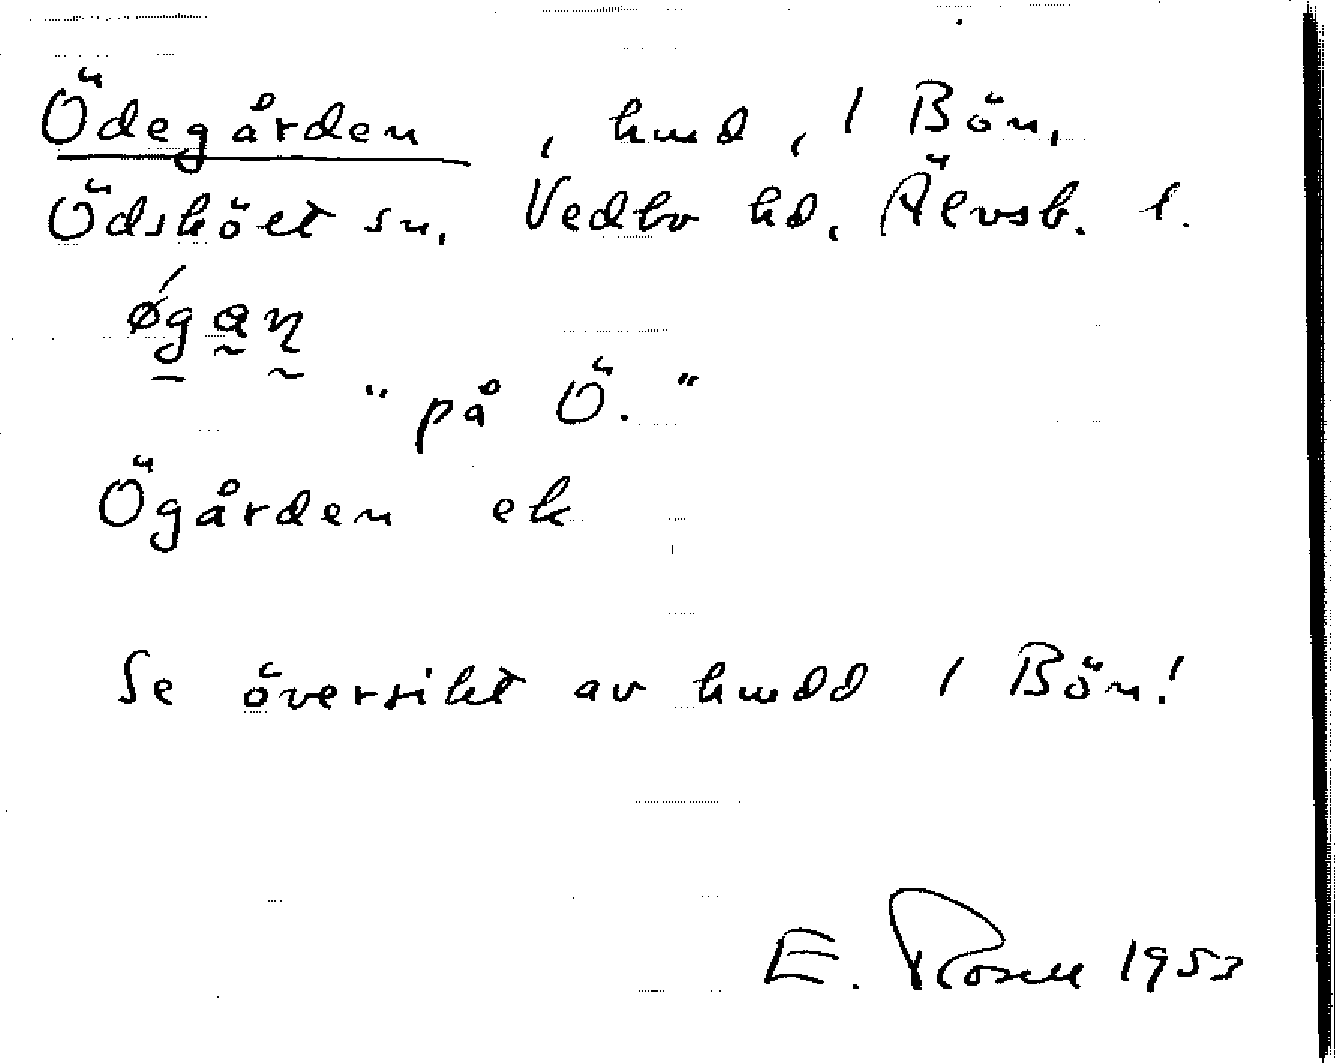 Ödegården, hmd, 1 Bön,
Ödsköelt sn, Vedbo hd, Älvsb. l.
ǿgan
"på Ö."
Ögården ek
Se översikt av hmdd 1 Bön!
E. Rosell 1953